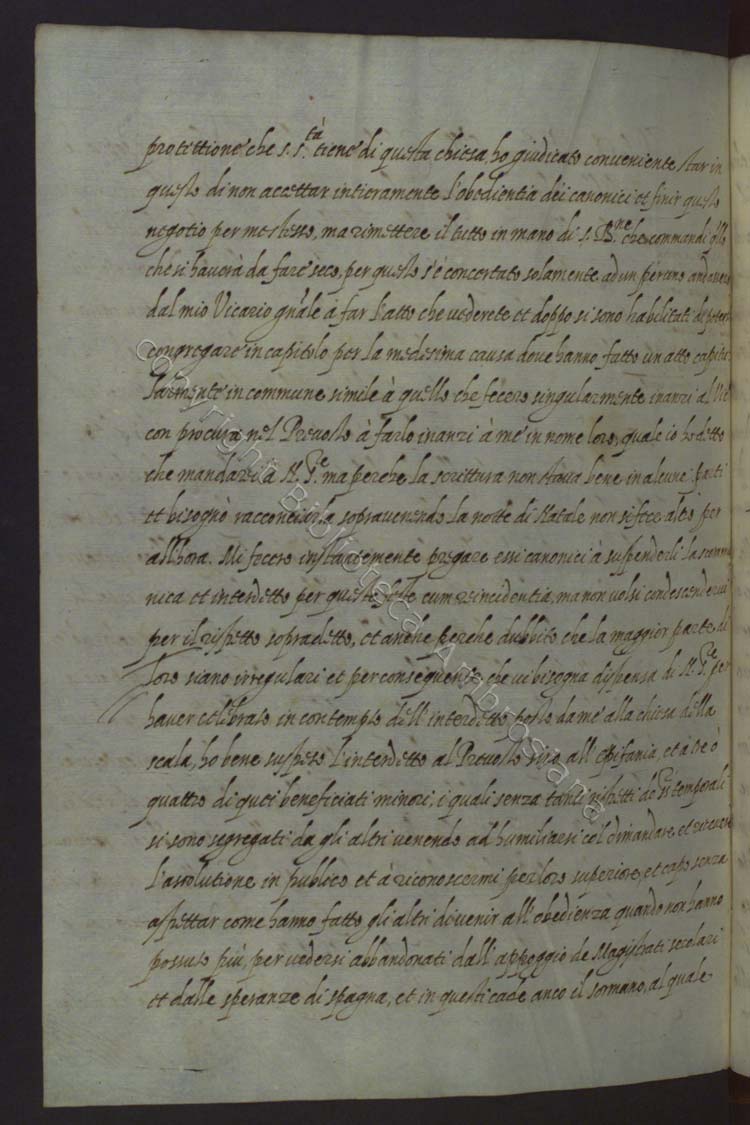 protettione che S. S.tà tiene di questa chiesa, ho giudicato conveniente star in
questo di non accettar intieramente l'obedientia dei canonici et finir questo
negotio per me stesso, ma rimettere il tutto in mano di S. B.ne che commandi
che si haverà da fare seco, per questo s'è concertato solamente ad un per uno andassero
dal mio Vicario gn'ale à far l'atto che vederete et doppo si sono habilitati di poter
congregare in capitolo per la medesima causa dove hanno fatto un atto capitu
larmente in commune simile à quello che fecero singularmente inanzi al
con procura nel Prevosto à farlo inanzi à me in nome loro, quale io ho detto
che mandarei à N. S.re ma perche la scrittura non stava bene in alcune parti
et bisognò racconciarla sopravenendo la notte di Natale non si fece altro per
all'hora. Mi fecero instantemente pregare essi canonici à suspenderli la scommu
nica et interdetto per queste feste cum reincidentia, ma non volsi condescendervi
per il rispetto sopradetto, et anche perche dubbito che la maggior parte di
loro siano irregulari et per consequente che vi bisogna dispensa di N. S.re per
haver celibrato in contempto dell'interdetto posto da me alla chiesa della
scala, ho bene suspeso l'interdetto al Prevosto sino all'epifania, et à tre ò
quattro di quei beneficiati minori, i quali senza tanti rispetti temporali
si sono segregati da gli altri venendo ad humiliarsi col dimandare et ricevere
l'assolutione in publico et à riconoscermi per loro superiore, et capo senza
aspettar come hanno fatto gli altri di venir all'obedienza quando non hanno
possuto più, per vedersi abbandonati dall'appoggio de Magistrati secolari
et dalle speranze di spagna, et in questi cade anco il sormano, al quale
copyright Biblioteca Ambrosiana